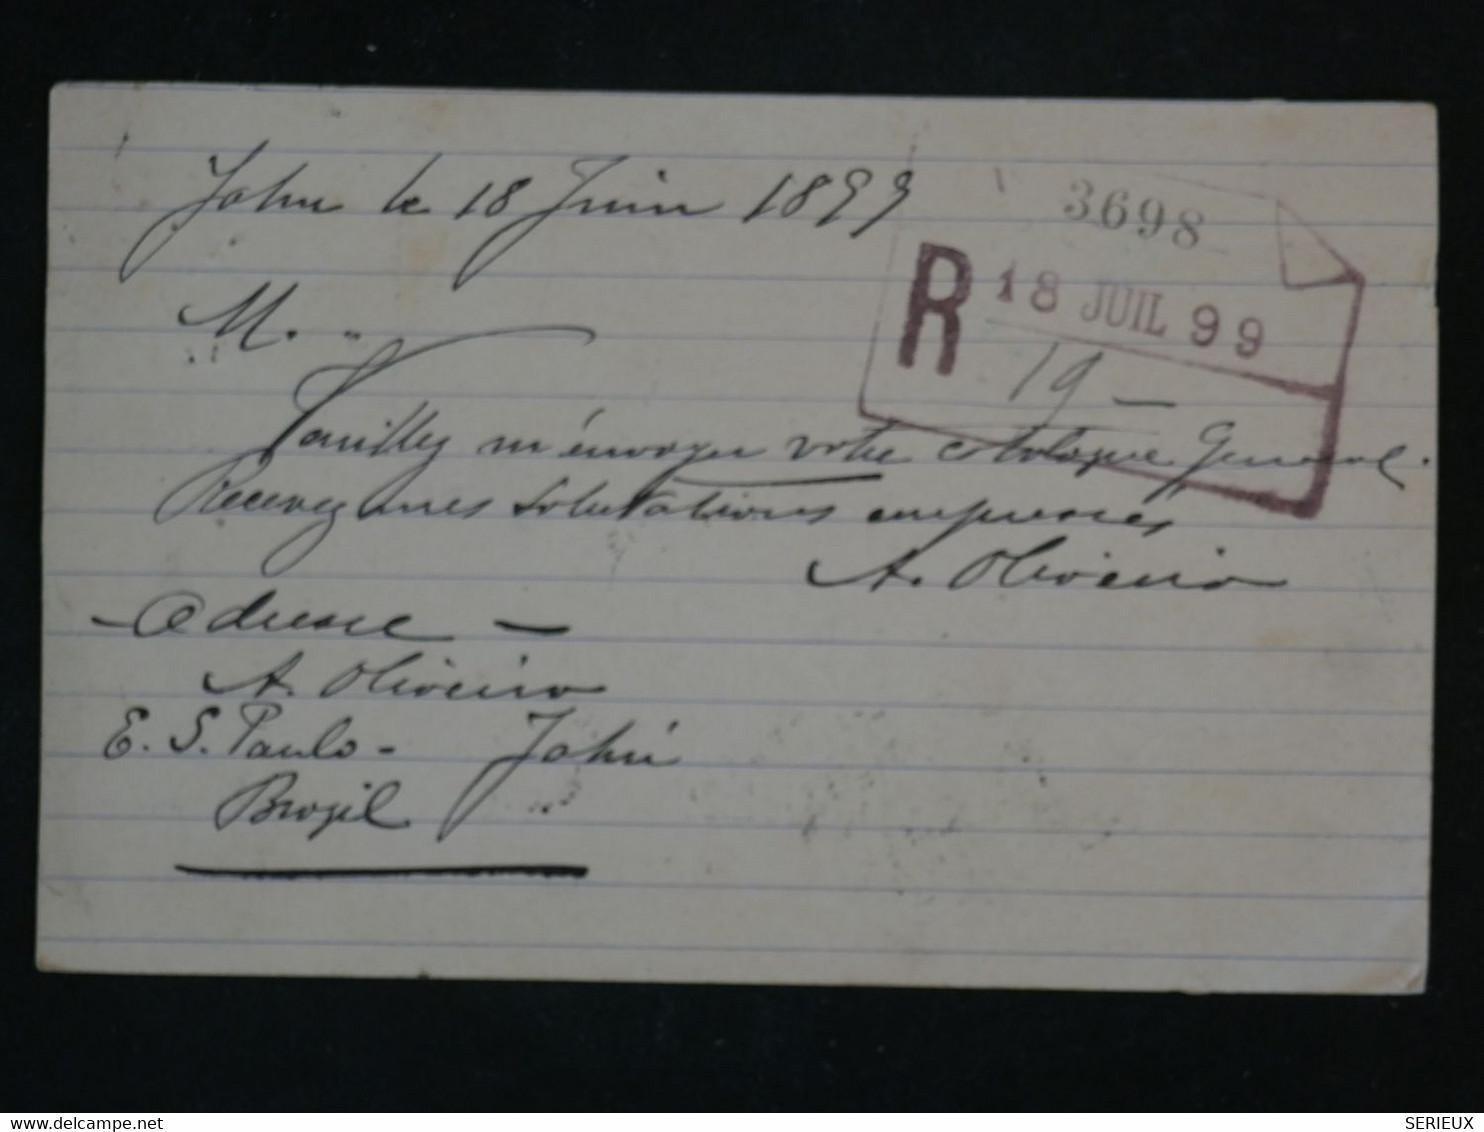 Jahu le 18 Juin 1899
3698
R 18 JUIL 99
19 —
M. "
Veuillez m'envoyer votre catalogue General.
Recevez mes salutations empressées
A. Oliveira
— Adresse —
A. Oliveira
E. S. Paulo - Jahú
Brazil
SERIEUX
delcampe.net